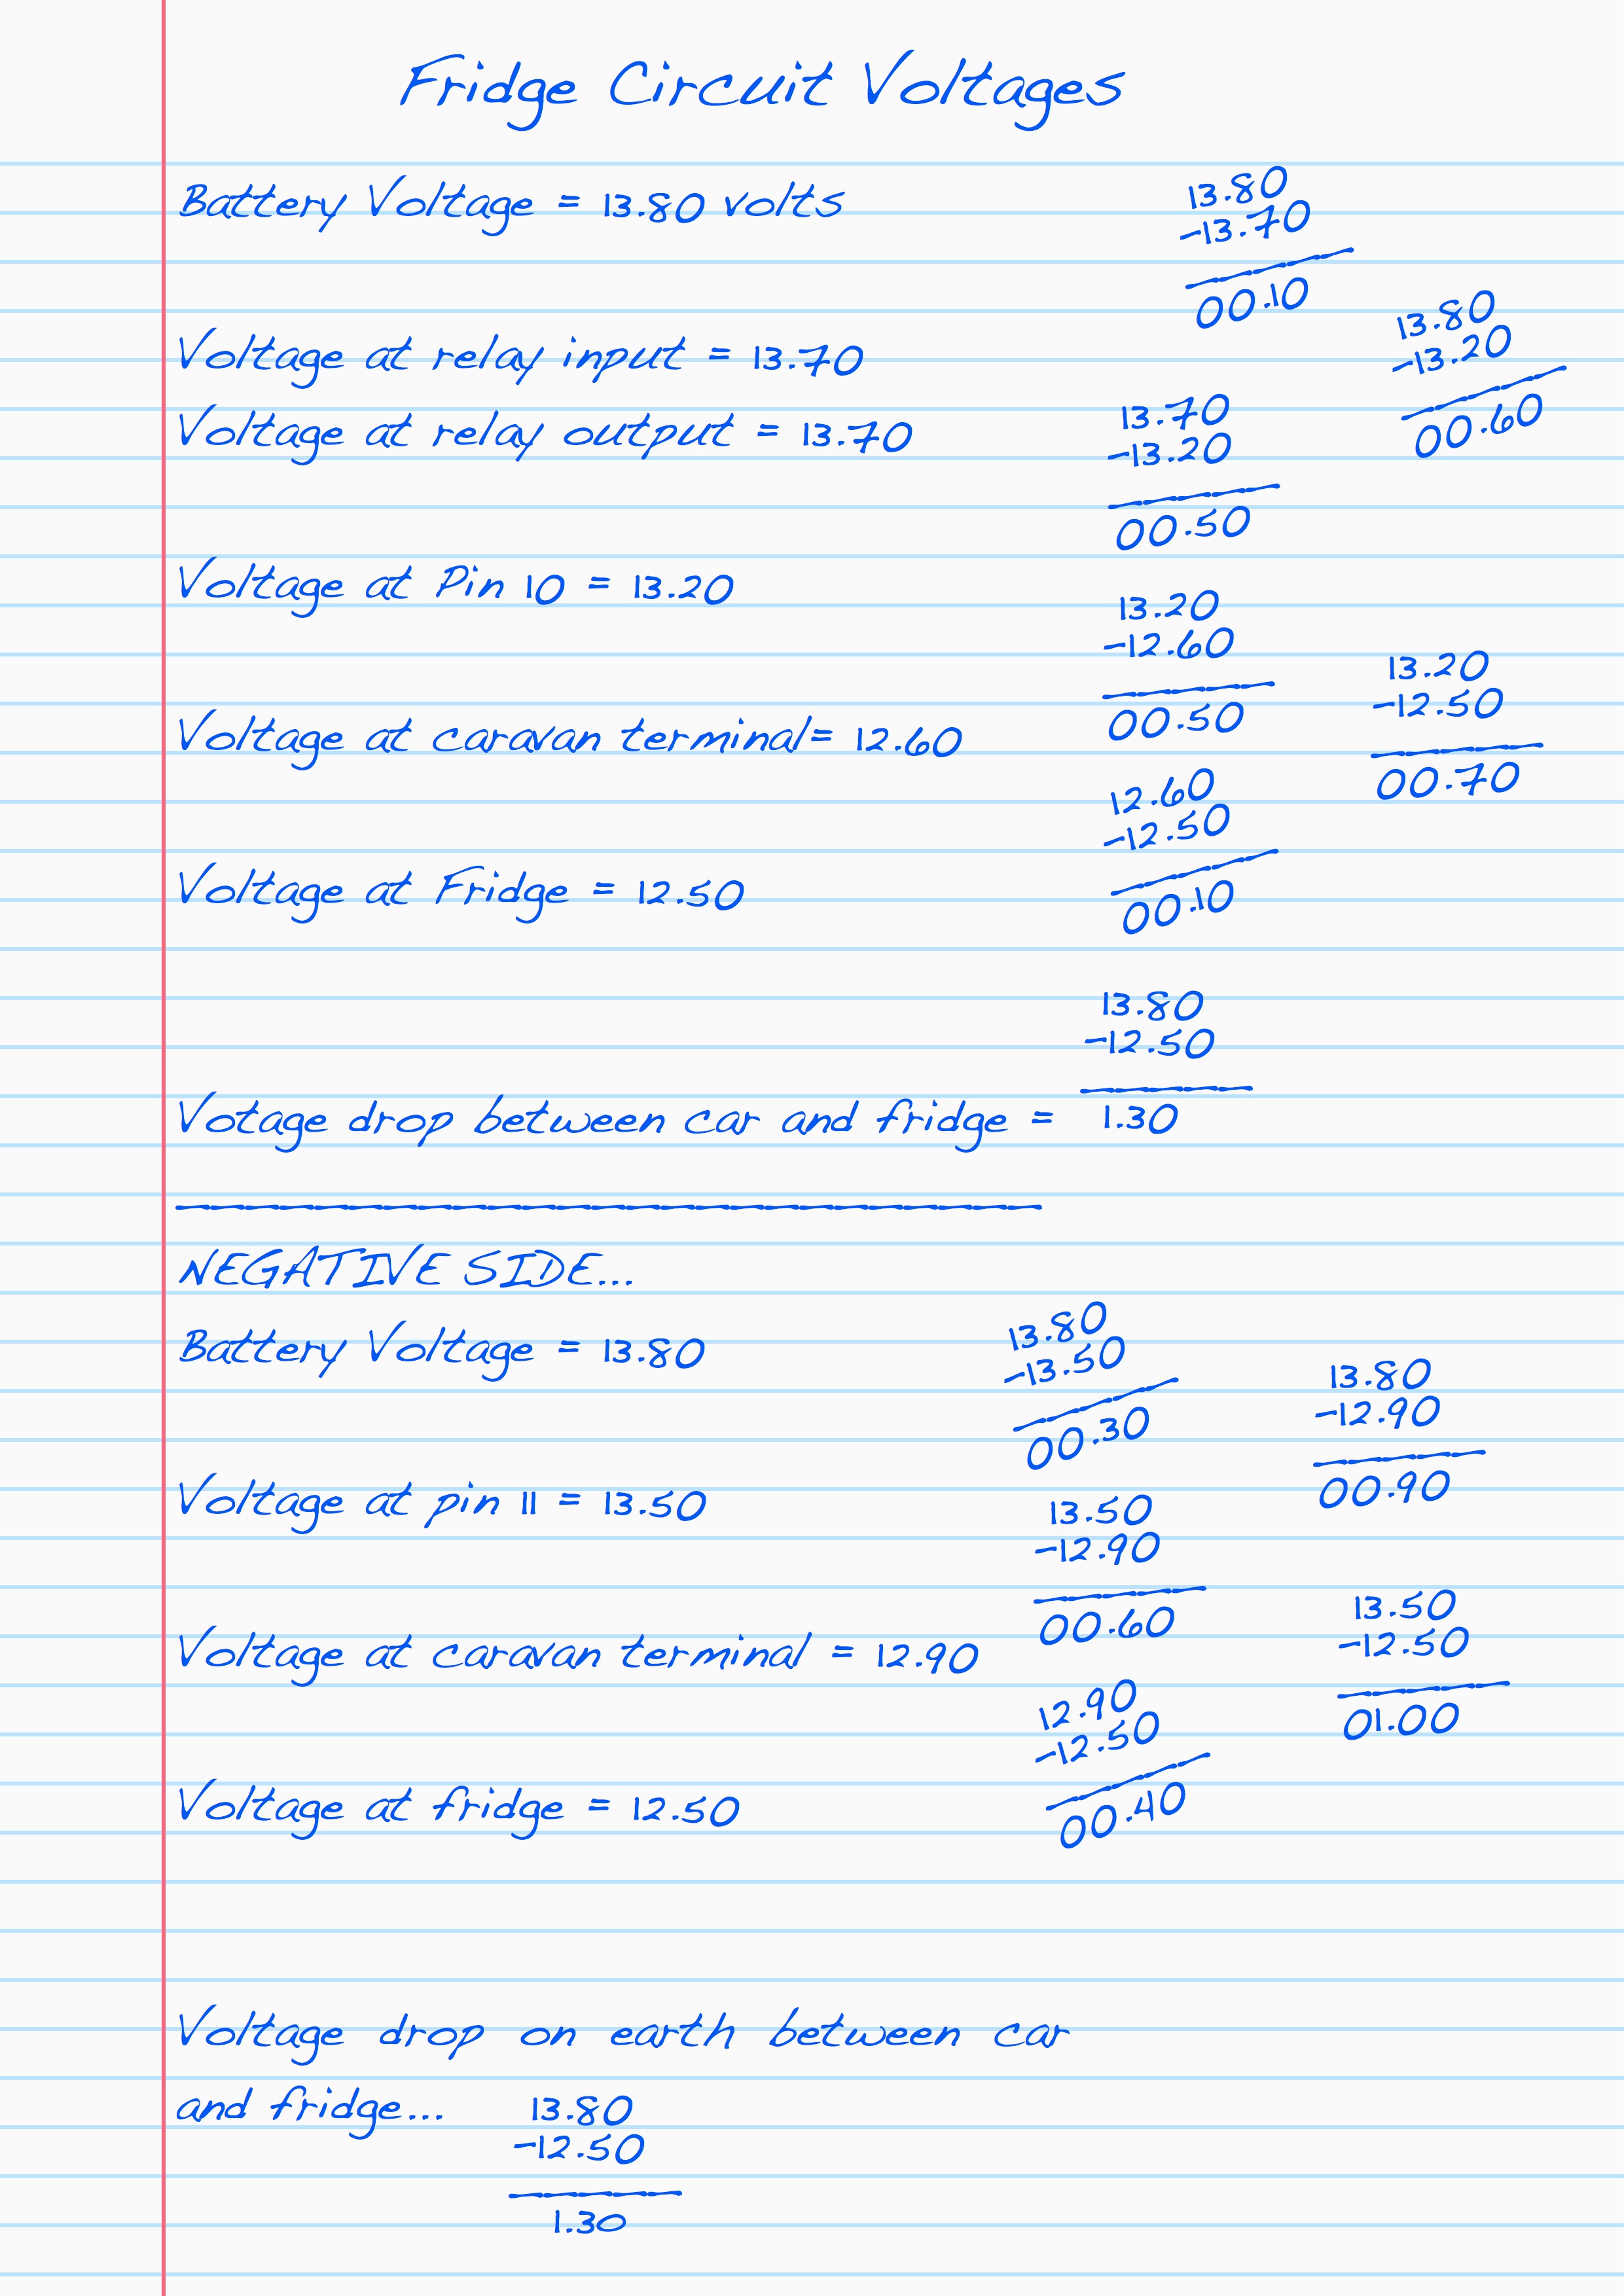 Fridge Circuit Voltages
Battery Voltage = 13.80 volts
13.80
-13.70
00.10
13.80
-13.20
00.60
Voltage at relay input = 13.70
Voltage at relay output = 13.70
13.70
-13.20
00.50
Voltage at Pin 10 = 13.20
13.20
-12.60
00.50
13.20
-12.50
00.70
Voltage at caravan terminal= 12.60
12.60
-12.50
00.10
Voltage at Fridge = 12.50
13.80
-12.50
Votage drop between car and fridge = 1.30
NEGATIVE SIDE...
Battery Voltage = 13.80
13.80
-13.50
00.30
13.80
-12.90
00.90
Voltage at pin 11 = 13.50
13.50
-12.90
00.60
13.50
-12.50
01.00
Voltage at caravan terminal = 12.90
12.90
-12.50
00.40
Voltage at fridge = 12.50
Voltage drop on earth between car
and fridge... 13.80
-12.50
1.30